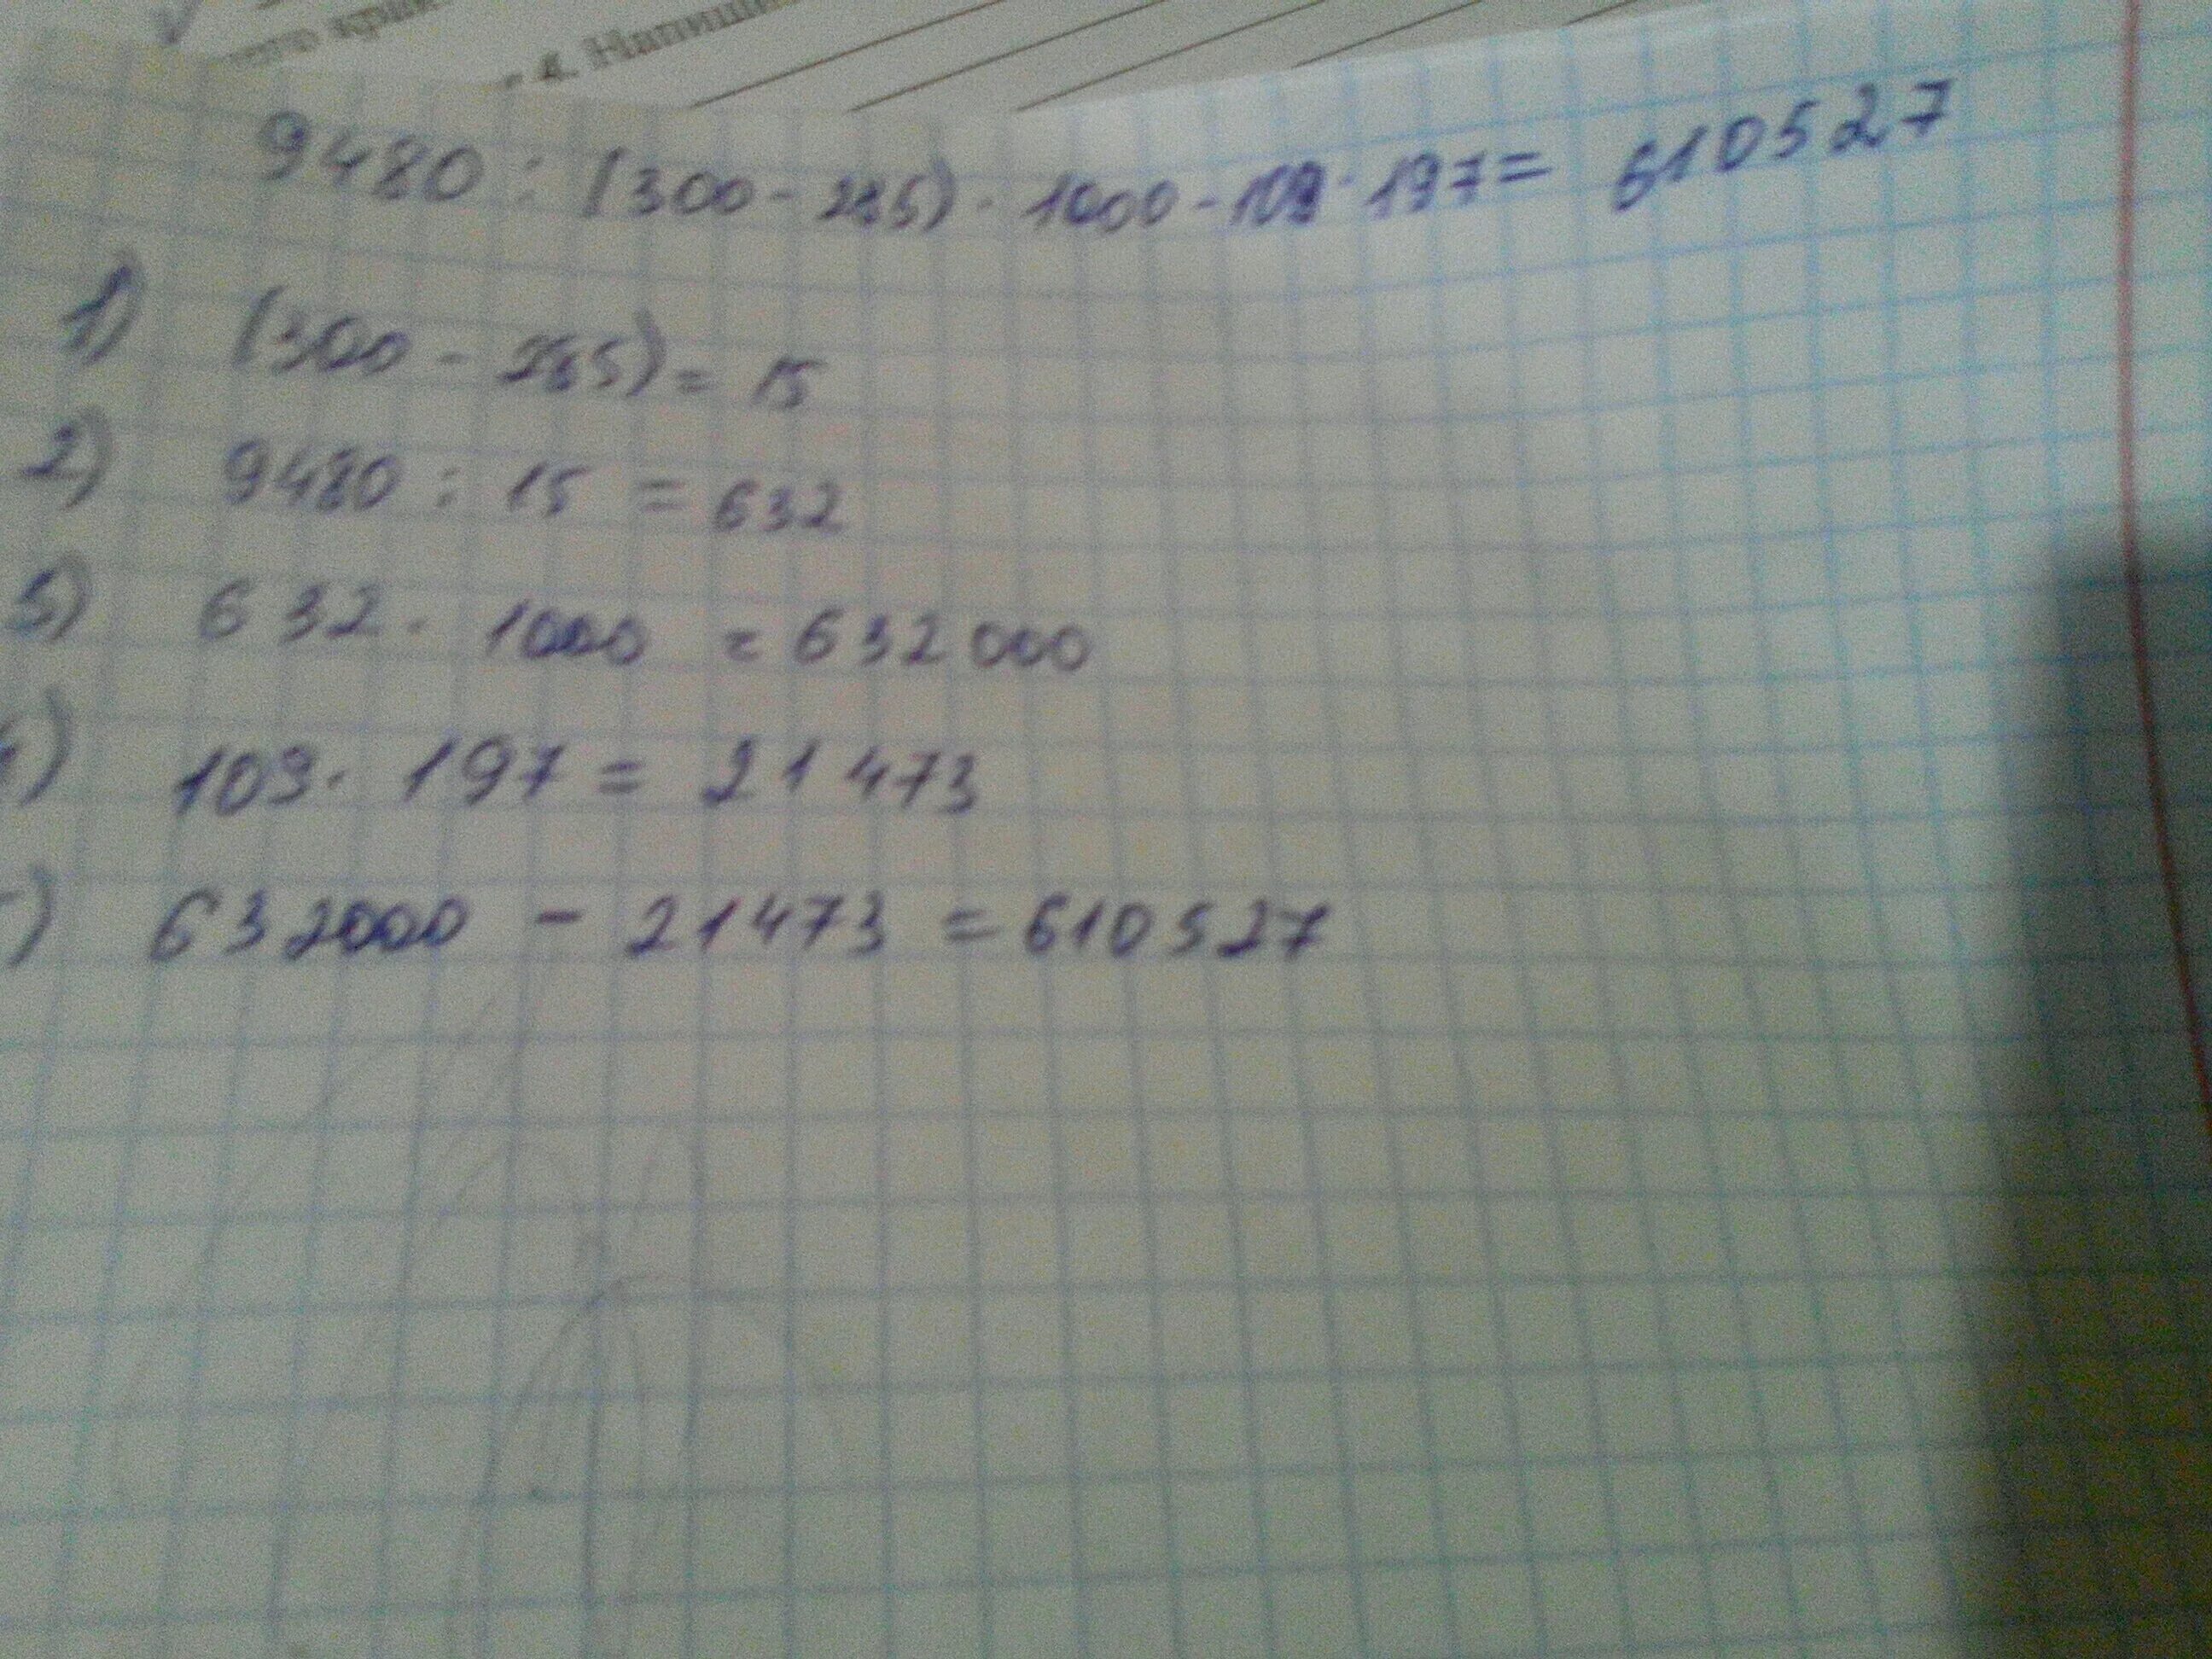 4. Напиши
9480 : (300 - 285) · 1000 - 109 · 197 = 610527
1) (300 - 285) = 15
2) 9480 : 15 = 632
3) 632 · 1000 = 632000
4) 109 · 197 = 21473
) 632000 - 21473 = 610527